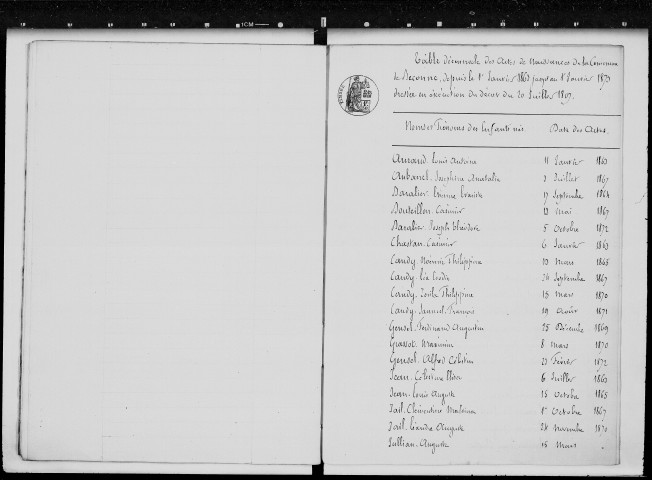 1CM
Table décennale des Actes de Naissances de la Commune
de depuis le 1er Janvier 1863 jusqu'au 1er Janvier 1873
dressée en exécution du décret du 20 Juillet 1807.
Noms et Prénoms des Enfants nés. Date des Actes.
Louis Antoine 11 Janvier 1863
Aubanel Joséphine Anatalie 2 Juillet 1867
Baralier 17 Septembre 1864
Bouteillon Casimir 12 mai 1867
Baralier Joseph Théodore 5 Octobre 1872
Chastan Casimir 6 Janvier 1863
Candy Philippine 10 Mars 1865
Candy Léa 24 Septembre 1867
Candy Zoïla Philippine 15 Mars 1870
Candy Samuel François 19 Août 1871
Gensel Ferdinand Augustin 25 Décembre 1869
Grassot Maximin 8 Mars 1870
Gensel Alfred Célestin 21 Février 1872
Jean Célestine Elisa 6 Juillet 1863
Jean Louis Auguste 15 Octobre 1865
Jail Clémentine 1er Octobre 1867
Jail Léandre Auguste 28 Novembre 1870
Jullian Auguste 15 Mars